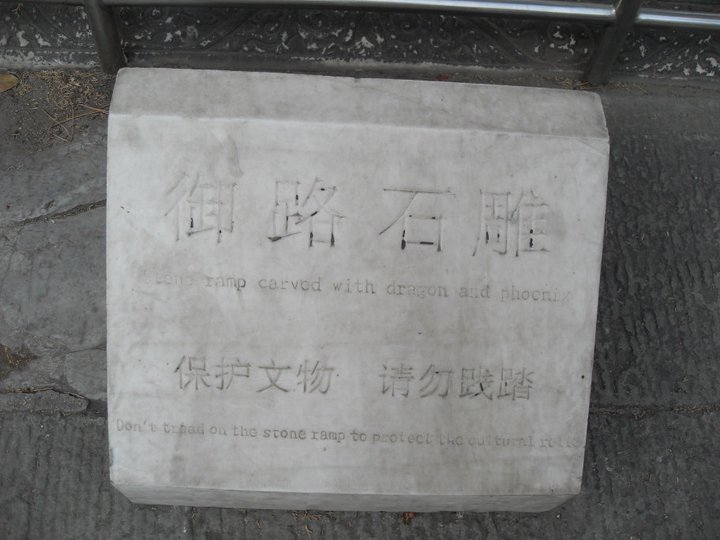 御路石雕
Stone ramp carved with dragon and phoenix
保护文物 请勿践踏
Don't tread on the stone ramp to protect the cultural relic